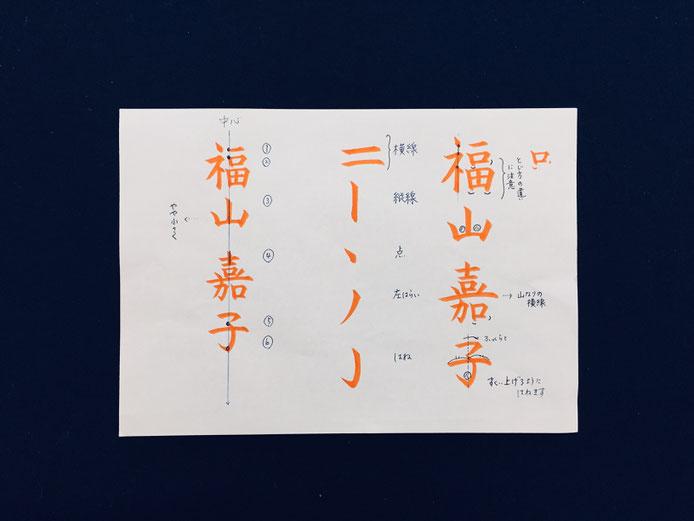 口
とじ方の違い
に注意
福山嘉子
イ ロ
山なりの
横線
ふっくらと
すくい上げるように
はねます
横線
縦線
点
左はらい
はね
中心
①
②
③
④
⑤
⑥
福山嘉子
やや小さく